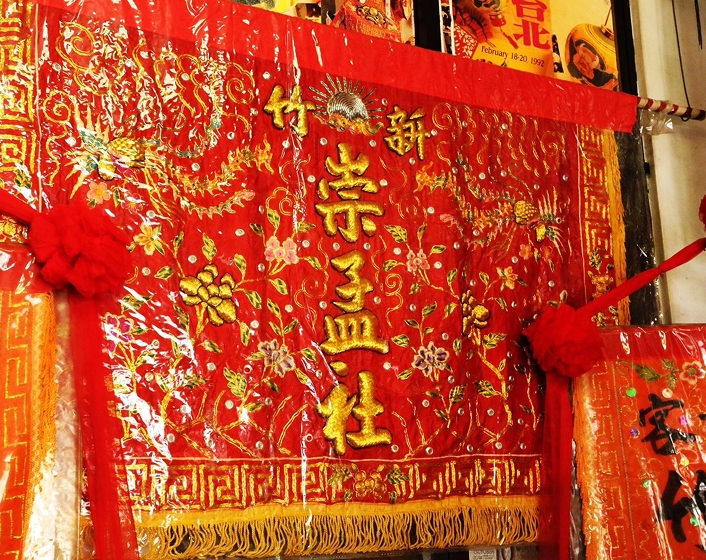 台北
February 18-20, 1992
新竹
崇孟社
客